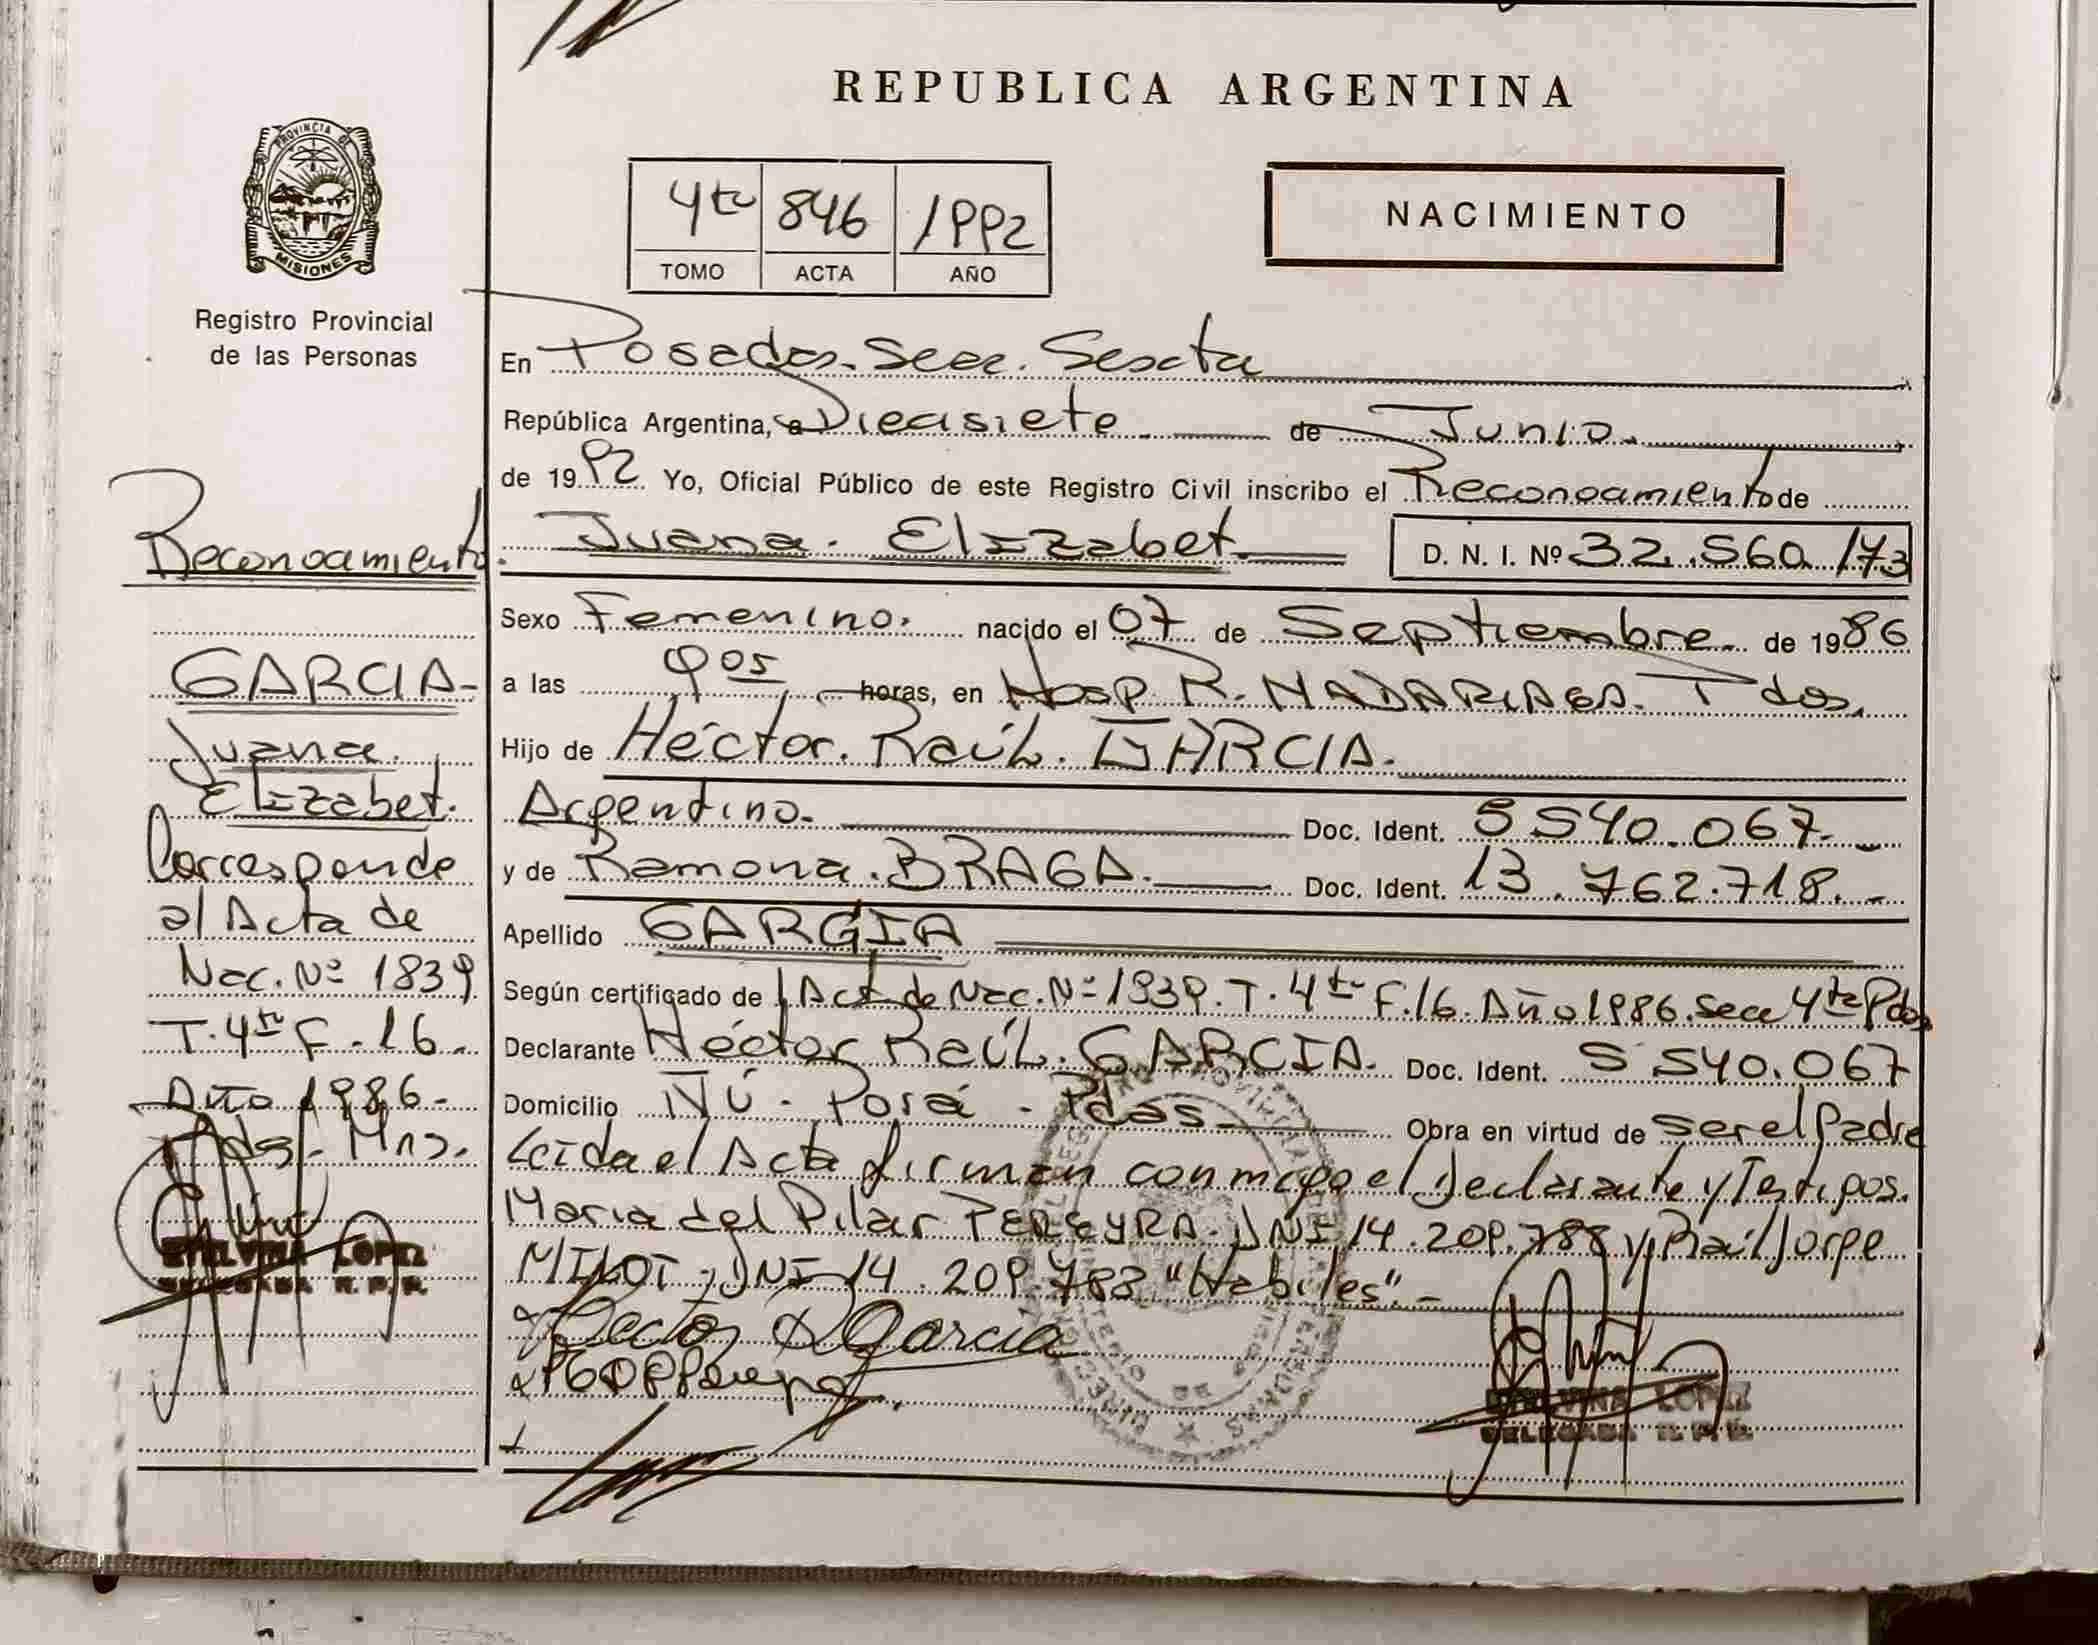 REPUBLICA ARGENTINA
PROVINCIA DE
MISIONES
Registro Provincial
de las Personas
4to 846 1992
TOMO ACTA AÑO
NACIMIENTO
En Posadas. Secc. Sexta
República Argentina, a Diecisiete de Junio.
de 1992 Yo, Oficial Público de este Registro Civil inscribo el Reconocimiento de
Juana. Elizabet. D. N. I. Nº 32.560.173
Sexo Femenino. nacido el 07 de Septiembre. de 1986
a las 9 05 horas, en Hosp R. MADARIAGA. Pdas.
Hijo de Héctor. Raúl. GARCIA.
Argentino. Doc. Ident. 5 540.067.
y de Ramona. BRAGA. Doc. Ident. 13.762.718.-
Apellido GARCIA
Según certificado de Act de Nac. Nº 1839. T. 4to F. 16. Año 1986. Secc 4ta Pdas
Declarante Héctor Raúl. GARCIA. Doc. Ident. 5 540.067
Domicilio Ñú - Porá - Pdas Obra en virtud de ser el Padre
Leída el Acta firman conmigo el Declarante y Testigos.
María del Pilar PEREYRA. DNI 14.209.788 y Raúl Jorge
MILOT, DNI 14.209.783 "Habiles" -
Hector R Garcia
ETELVINA LOPEZ
DELEGADA R. P. P.
Reconocimiento.
GARCIA-
Juana.
Elizabet.
Corresponde
al Acta de
Nac. Nº 1839
T. 4to F. 16.
Año 1986-
Pdas. Mns.
ETELVINA LOPEZ
DELEGADA R. P. P.